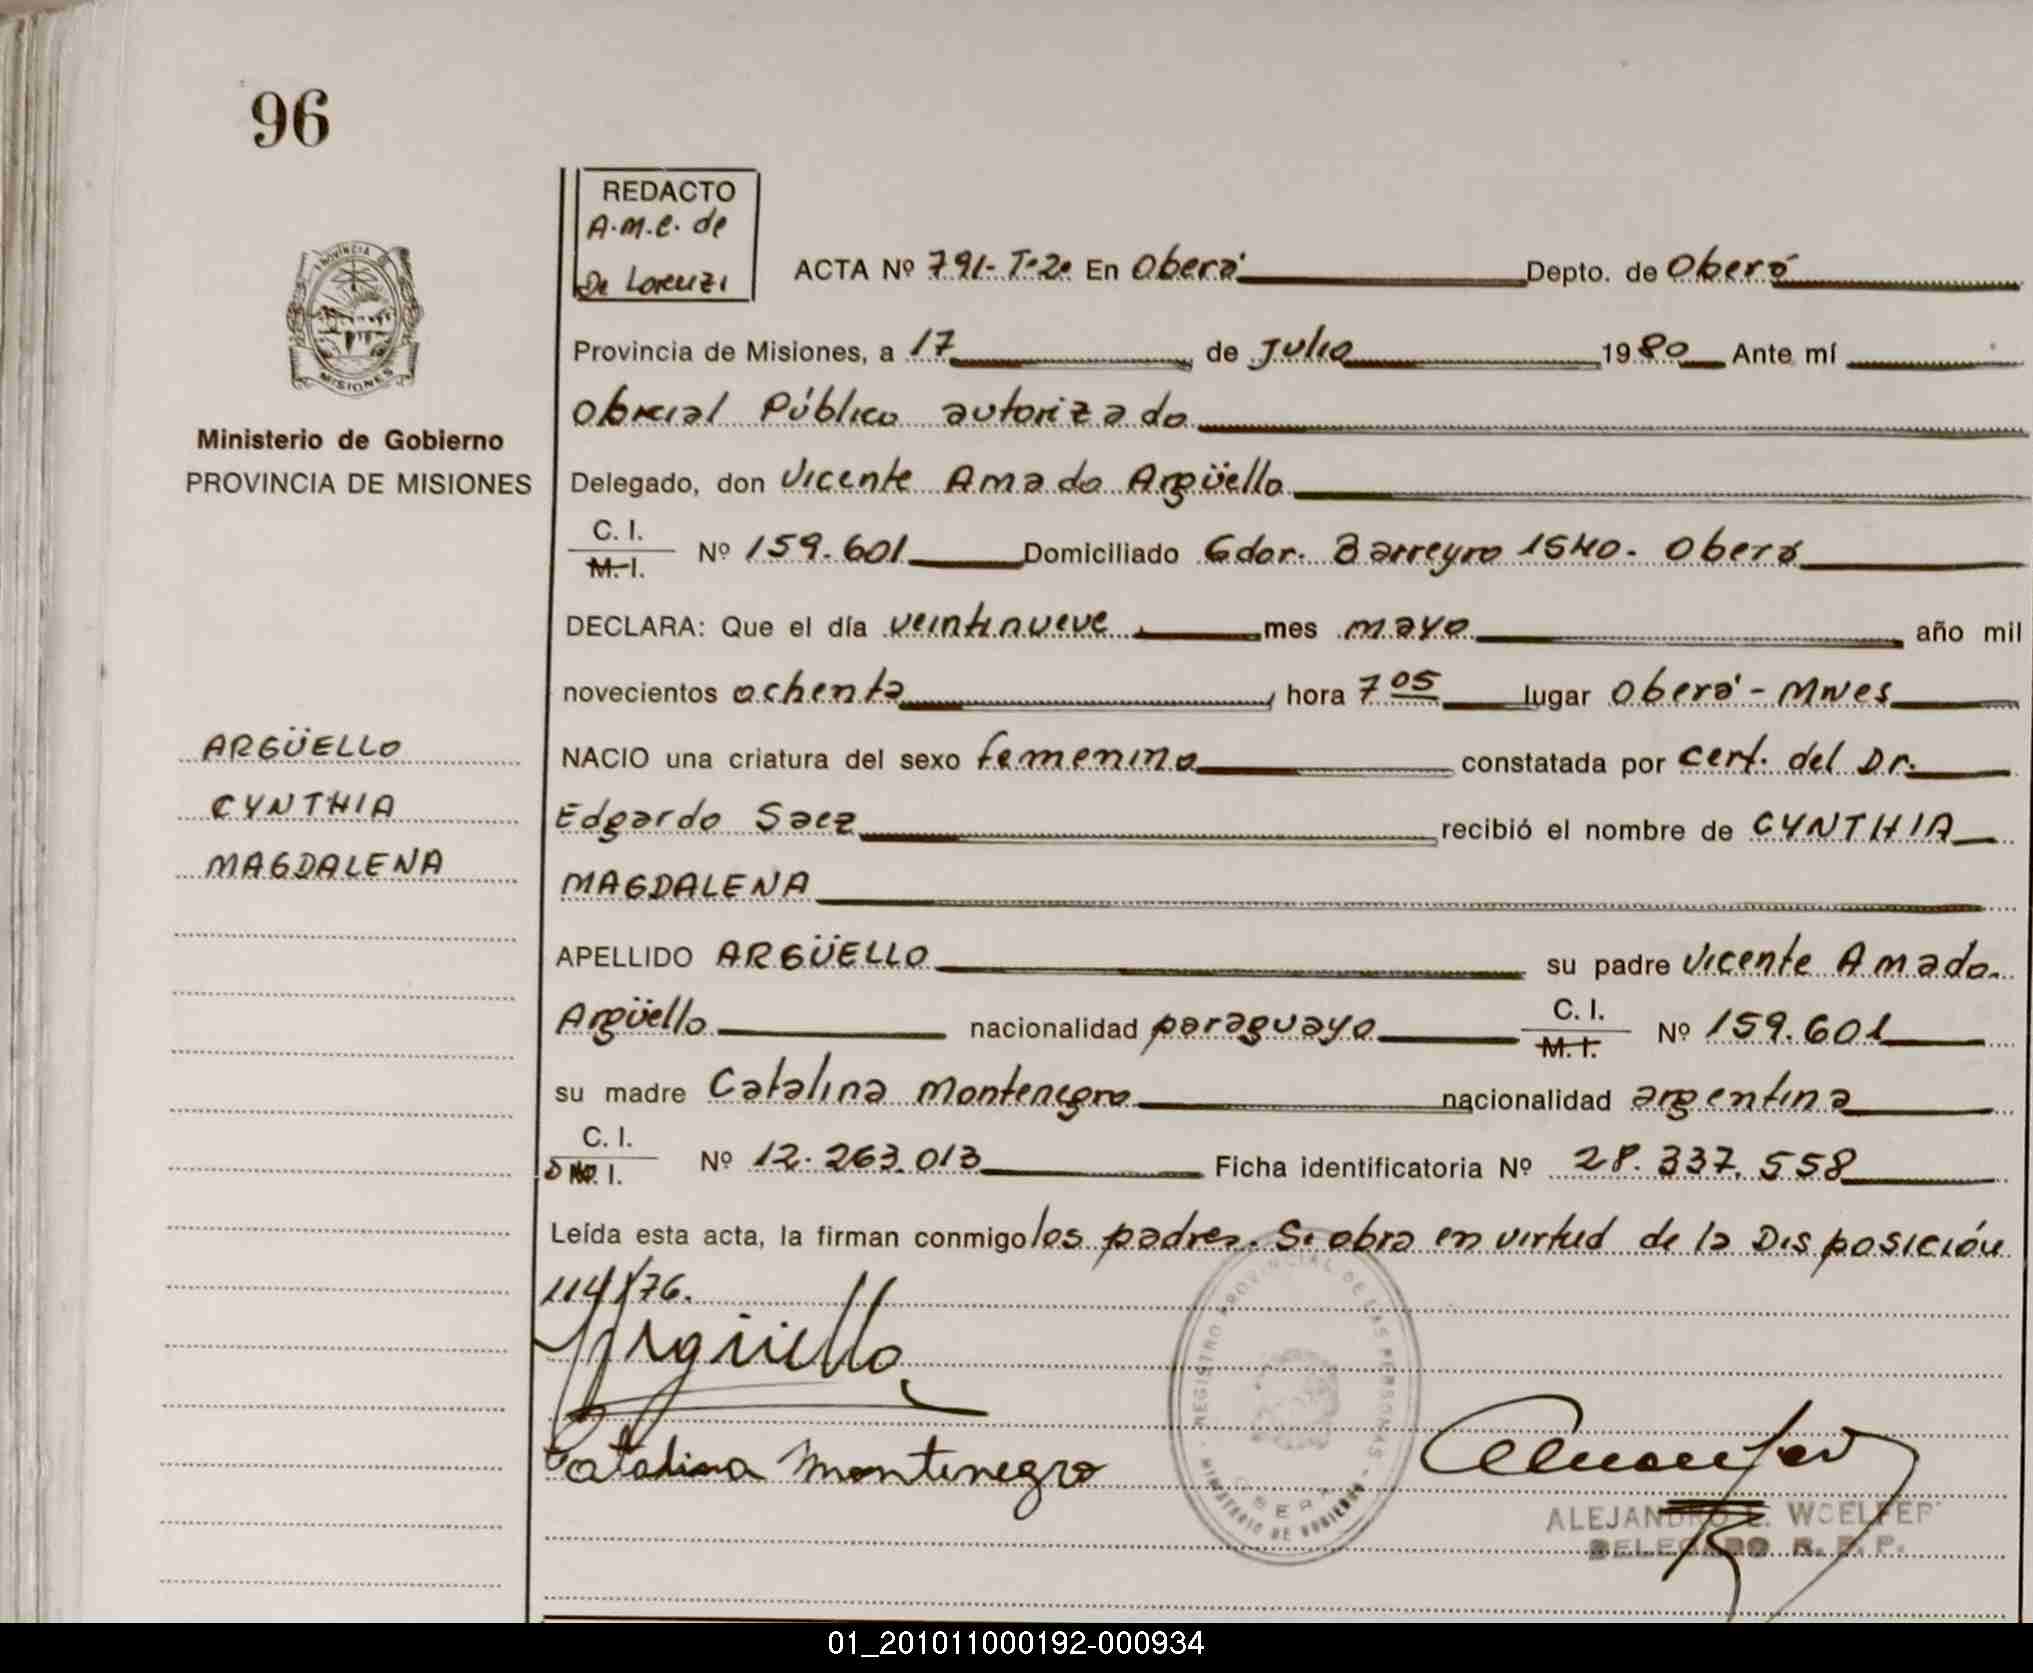 96
REDACTO
A.M.E. de
De Lorenzi
ACTA Nº 791- Tº 2º En Oberá Depto. de Oberá
PROVINCIA DE
MISIONES
Provincia de Misiones, a 17 de Julio 1980 Ante mí
Oficial Público autorizado
Ministerio de Gobierno
PROVINCIA DE MISIONES
Delegado, don Vicente Amado Argüello
C. I.
M. I. Nº 159.601 Domiciliado Gdor. Barreyro 1540. Oberá
DECLARA: Que el día veintinueve mes mayo año mil
novecientos ochenta hora 7 05 lugar Oberá - Mnes
ARGÜELLO
CYNTHIA
MAGDALENA
NACIO una criatura del sexo femenino constatada por cert. del Dr.
Edgardo Saez recibió el nombre de CYNTHIA
MAGDALENA
APELLIDO ARGÜELLO su padre Vicente Amado
Argüello nacionalidad paraguayo C. I.
M. I. Nº 159.601
su madre Catalina Montenegro nacionalidad argentina
C. I.
D N. I. Nº 12.263.013 Ficha identificatoria Nº 28.337.558
Leída esta acta, la firman conmigo los padres. Se obra en virtud de la Disposición
114/76.
Argüello
Catalina Montenegro
REGISTRO PROVINCIAL DE LAS PERSONAS
OBERA
MINISTERIO DE GOBIERNO
ALEJANDRO E. WOELFER
DELEGADO R. P. P.
01_201011000192-000934